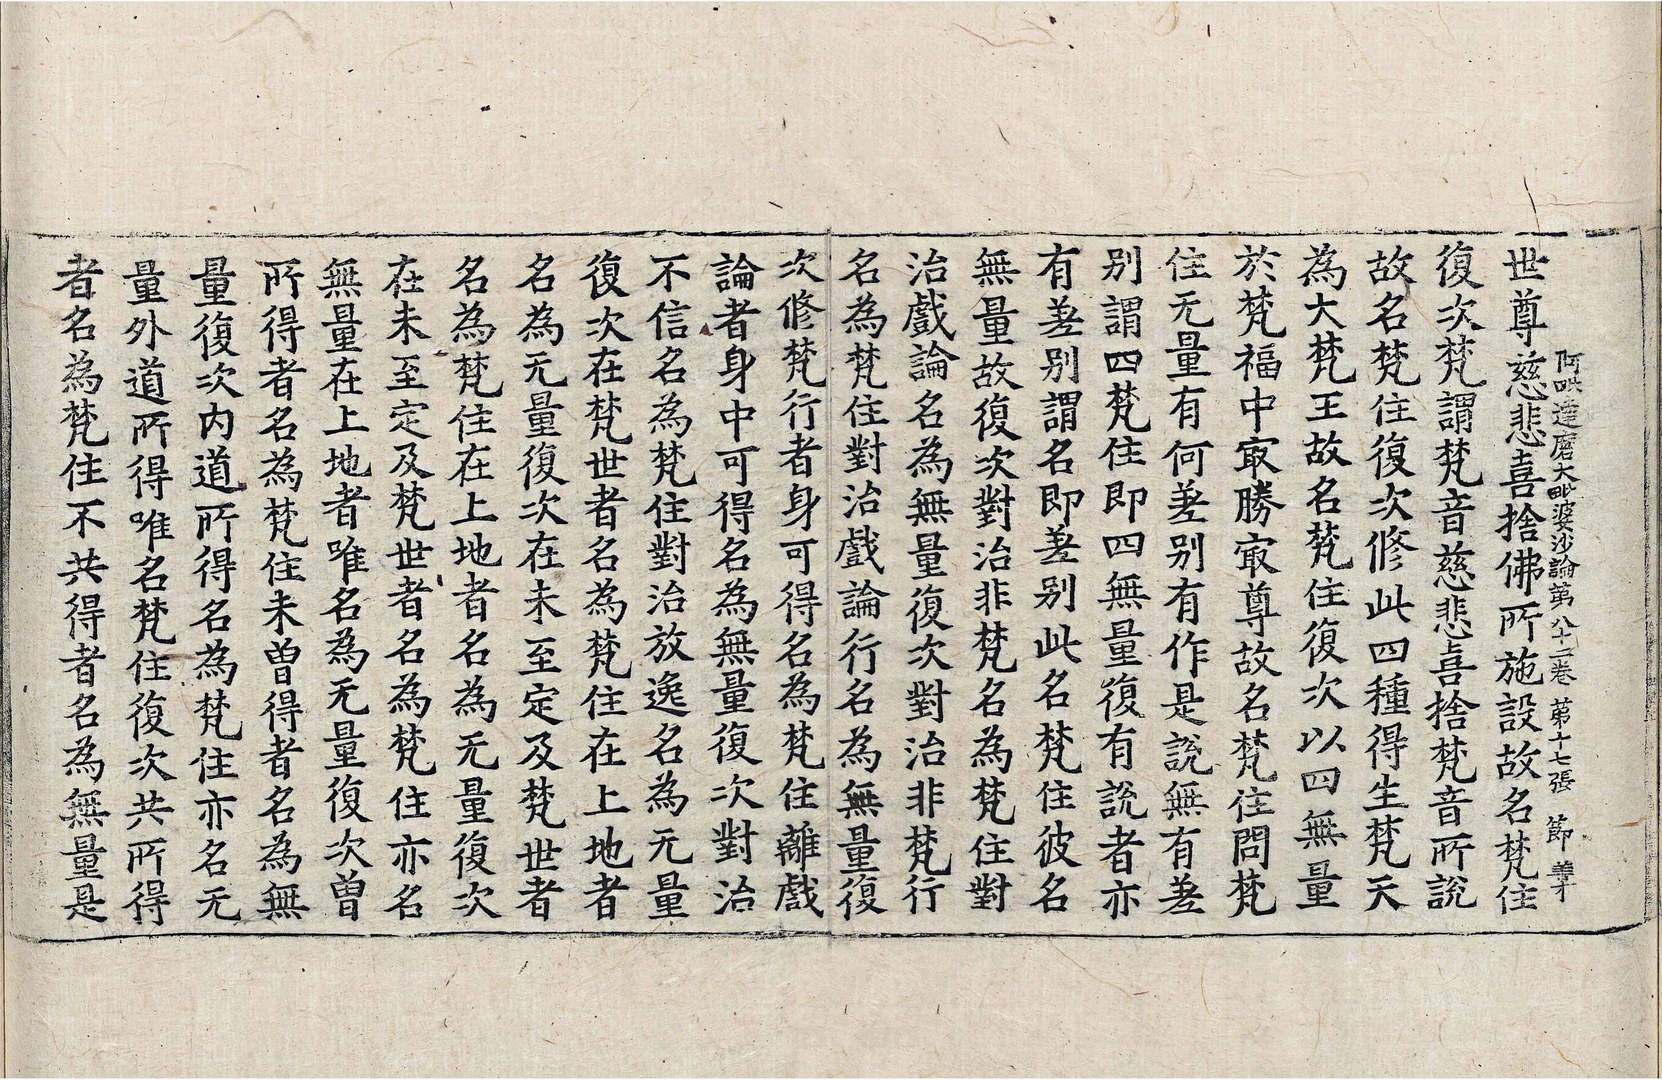 阿毗達磨大毗婆沙論第八十二卷 苐十七張 節 善才
世尊慈悲喜捨佛所施設故名梵住
復次梵謂梵音慈悲喜捨梵音所說
故名梵住復次修此四種得生梵天
為大梵王故名梵住復次以四無量
於梵福中㝡勝㝡尊故名梵住問梵
住无量有何差别有作是說無有差
别謂四梵住即四無量復有說者亦
有差别謂名即差别此名梵住彼名
無量故復次對治非梵名為梵住對
治戲論名為無量復次對治非梵行
名為梵住對治戲論行名為無量復
次修梵行者身可得名為梵住離戲
論者身中可得名為無量復次對治
不信名為梵住對治放逸名為无量
復次在梵世者名為梵住在上地者
名為无量復次在未至定及梵世者
名為梵住在上地者名為无量復次
在未至定及梵世者名為梵住亦名
無量在上地者唯名為无量復次曾
所得者名為梵住未曾得者名為無
量復次内道所得名為梵住亦名无
量外道所得唯名梵住復次共所得
者名為梵住不共得者名為無量是